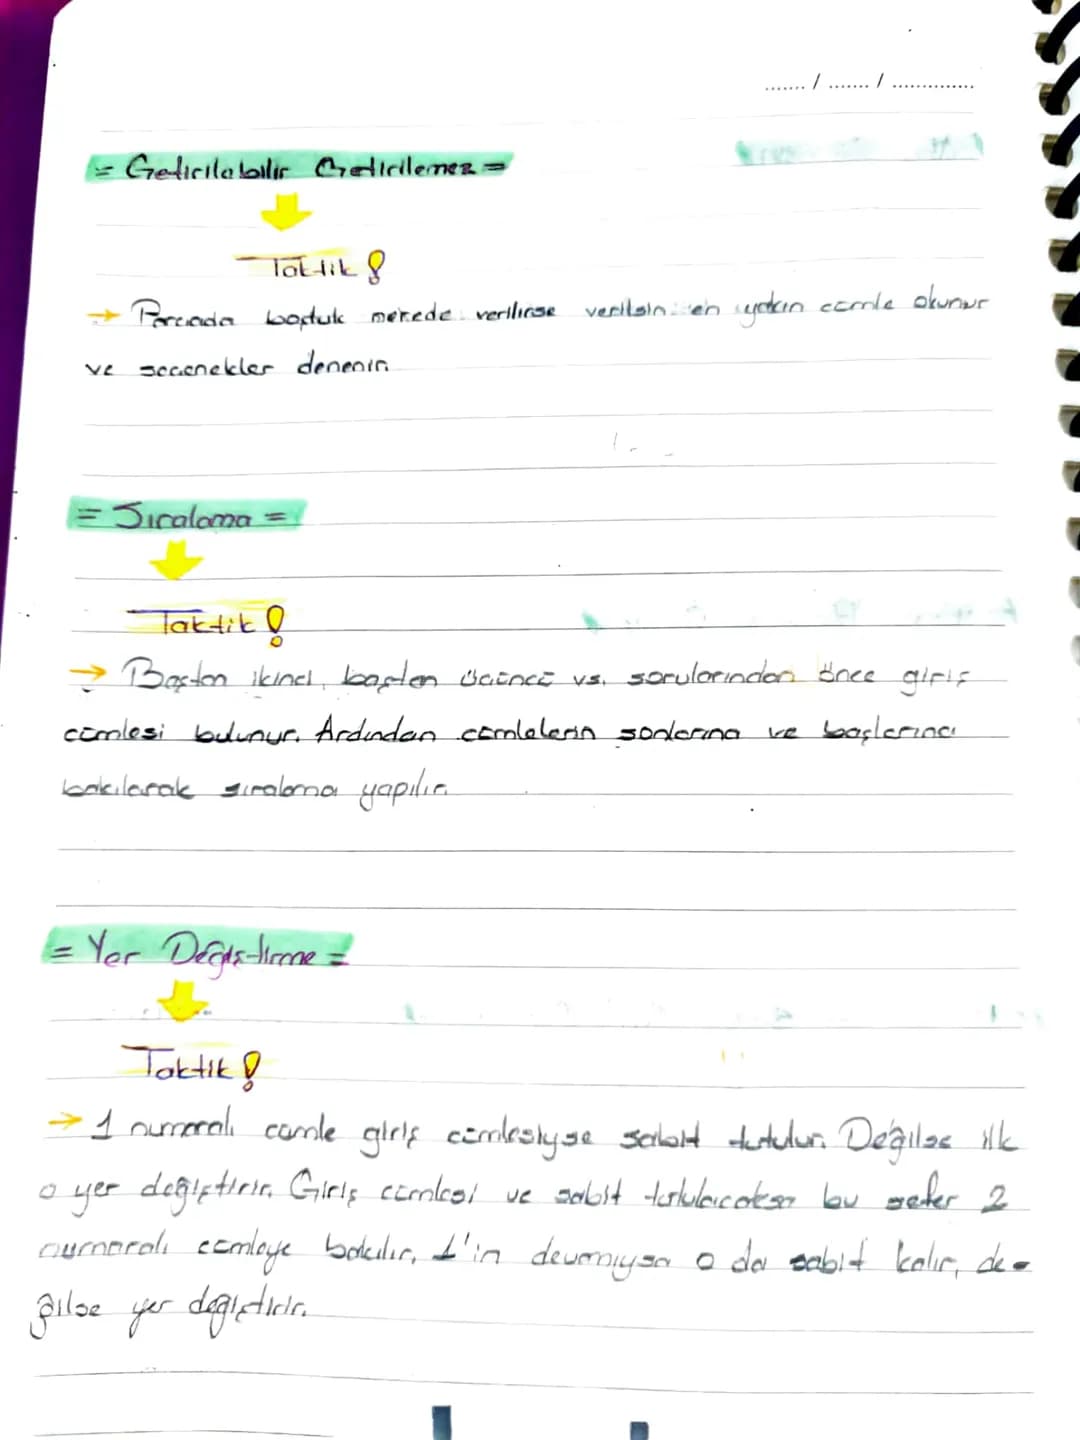 ....... / ....... / ..............
= Getirilebilir Getirilemez =
Taktik !
→ Parçada boşluk nerede verilirse verilsin en yakın cümle okunur
ve seçenekler denenir.
= Sıralama =
Taktik !
→ Baştan ikinci, baştan üçüncü vs. sorularından önce giriş
cümlesi bulunur. Ardından cümlelerin sonlarına ve başlarına
bakılarak sıralama yapılır.
= Yer Değiştirme =
Taktik !
→ 1 numaralı cümle giriş cümlesiyse sabit tutulur. Değilse ilk
o yer değiştirir. Giriş cümlesi ve sabit tutulacaksa bu sefer 2
numaralı cümleye bakılır, 1'in devamıysa o da sabit kalır, de-
ğilse yer değiştirir.